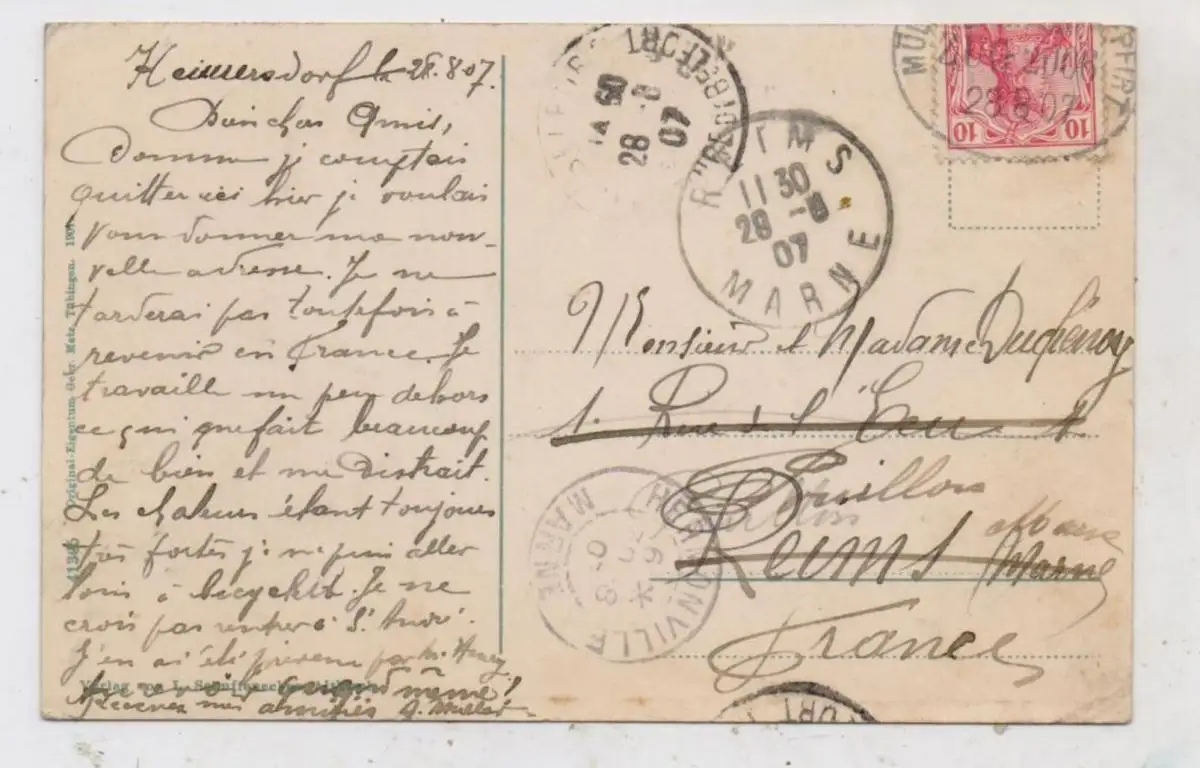 Heimersdorf le 28.8.07.
Bien chers Amis,
Comme je comptais
quitter ici hier je voulais
vous donner ma nou-
velle adresse. Je ne
tarderai pas toutefois à
revenir en France. Je
travaille un peu dehors
ce qui me fait beaucoup
de bien et me distrait.
Les chaleurs étant toujours
très fortes je ne puis aller
loin à bicyclette. Je ne
crois pas rentrer à St André.
J'en ai été prévenu par Mr Henry.
quand même!
Recevez mes amitiés A.
41395 Original-Eigentum Gebr. Metz, Tübingen.
Verlag von L.
BELFORT
28 -8
07
REIMS
11 30
29 -8
07
MARNE
28.8.07
10 10
Monsieur et Madame
1. Rue de l'Ecu 1
Pouillon
Reims Marne
Marne
France
HERMONVILLE
MARNE